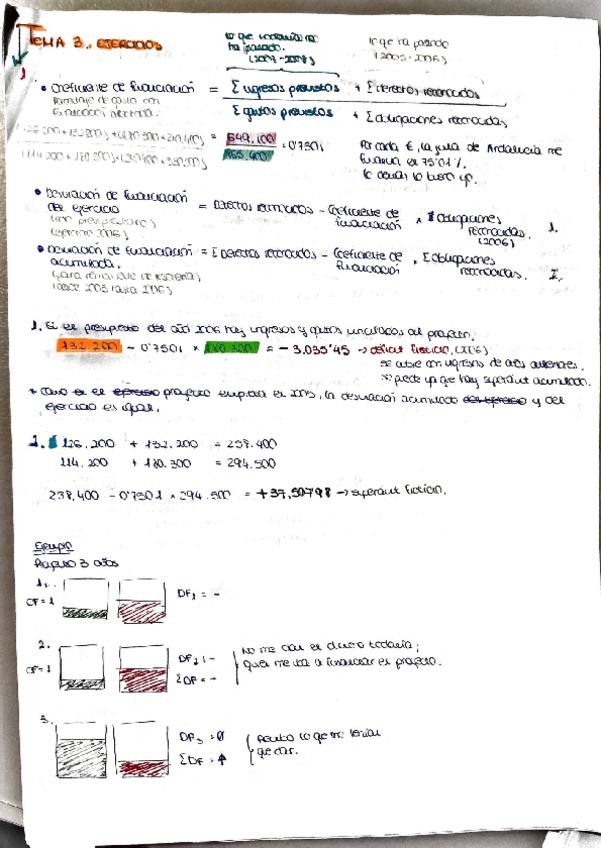 TEMA 3. EJERCICIOS
lo que todavía no
ha pasado.
(2007-2008)
lo que ha pasado
(2005-2006)
1
• Coeficiente de financiación = Σ ingresos previstos + Σ derechos reconocidos
Σ gastos previstos + Σ obligaciones reconocidas
Porcentaje de gasto con
financiación afectada.
= 649.100 = 0'7501
865.400
Por cada €, la junta de Andalucía me
financia el 75'01%.
lo demás lo pongo yo.
• Desviación de financiación = Derechos reconocidos - Coeficiente de × Σ obligaciones 1.
del ejercicio financiación reconocidas.
(2006)
(ejercicio 2006)
• Desviación de financiación = Σ Derechos reconocidos - Coeficiente de × Σ obligaciones 2.
acumulada. financiación reconocidas.
(desde 2005 hasta 2006)
1. En el presupuesto del año 2006 hay ingresos y gastos vinculados al proyecto.
132.200 - 0'7501 × 180.300 = - 3.035'45 → déficit ficticio, (2006)
se cubre con ingresos de años anteriores.
puede ya que hay superávit acumulado.
* Como es el ejercicio proyecto empieza el 2005, la desviación acumulada del ejercicio y del
ejercicio es igual.
2. 126.200 + 132.200 = 258.400
114.200 + 180.300 = 294.500
258.400 - 0'7501 × 294.500 = + 37.50798 → superávit ficticio.
Ejemplo
Proyecto 3 años
1.
CF = 1
DF₁ = -
2.
CF = 1
DF₂ = -
ΣDF = -
No me dan el dinero todavía;
quien me va a financiar el proyecto.
3.
DF₃ = 0
ΣDF = 
Recibo lo que me tenían
que dar.